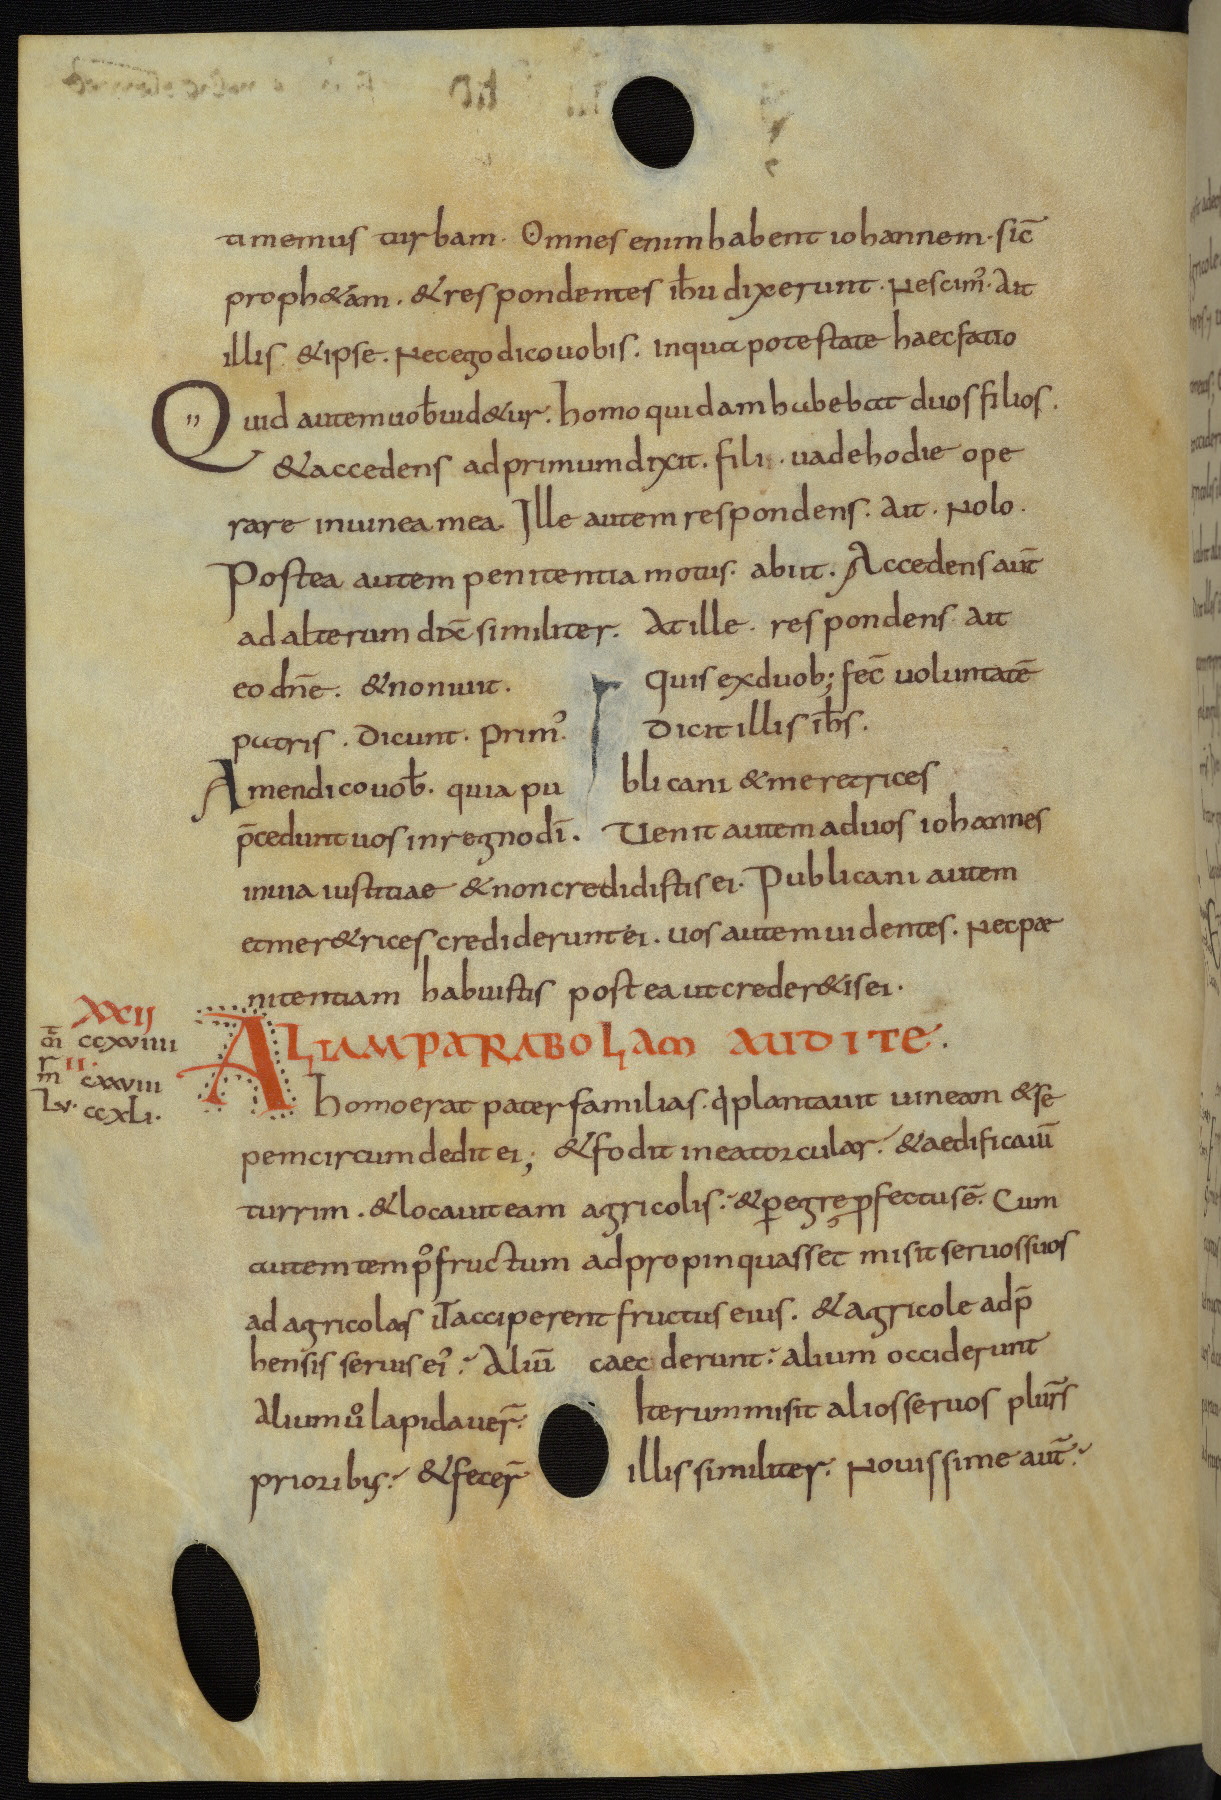 timemus turbam. Omnes enim habent iohannem. sic̄
proph&am. & respondentes ih̄u dixerunt. Nescim᾽. Ait
illis & ipse. Nec ego dico uobis. in qua potestate haec fatio
Quid autem uob̄ uid&ur. homo quidam habebat duos filios.
& accedens ad primum dixit. fili. uade hodie ope
rare in uinea mea. Ille autem respondens. ait. Nolo.
Postea autem penitentia motus. abiit. Accedens aut̄
ad alterum dix̄ similiter. At ille. respondens ait
eo dn̄e. & non iuit. quis ex duob; fec̄ uoluntatē
patris. dicunt. prim᾽. dicit illis ih̄s.
Amen dico uob̄. quia publicani & meretrices
p̄cedunt uos in regno dī. Uenit autem ad uos iohannes
in uia iustitiae & non credidistis ei. Publicani autem
et mer&rices crediderunt ei. uos autem uidentes. Nec pæ
nitentiam habuistis postea ut creder&is ei.
XXII
ALIAM PARABOLAM AUDITE.
m̄t ccxviiii
II
m̄r cxxviii
Lv. ccxli.
homo erat pater familias. q̄ plantauit uineam & se
pem circumdedit ei; & fodit in ea torcular. & aedificauit̄
turrim. & locauit eam agricolis. & p̱egre ꝓfectus ē. Cum
autem temp᾽ fructum adpropinquasset misit seruos suos
ad agricolas ut̄ acciperent fructus eius. & agricole adp̄
hensis seruis ei᾽. Aliū caecderunt. alium occiderunt
Alium u᷒ lapidauer̄. Iterum misit alios seruos plur̄s
prioribus. & fecer̄ illis similiter. Nouissime aut̄.